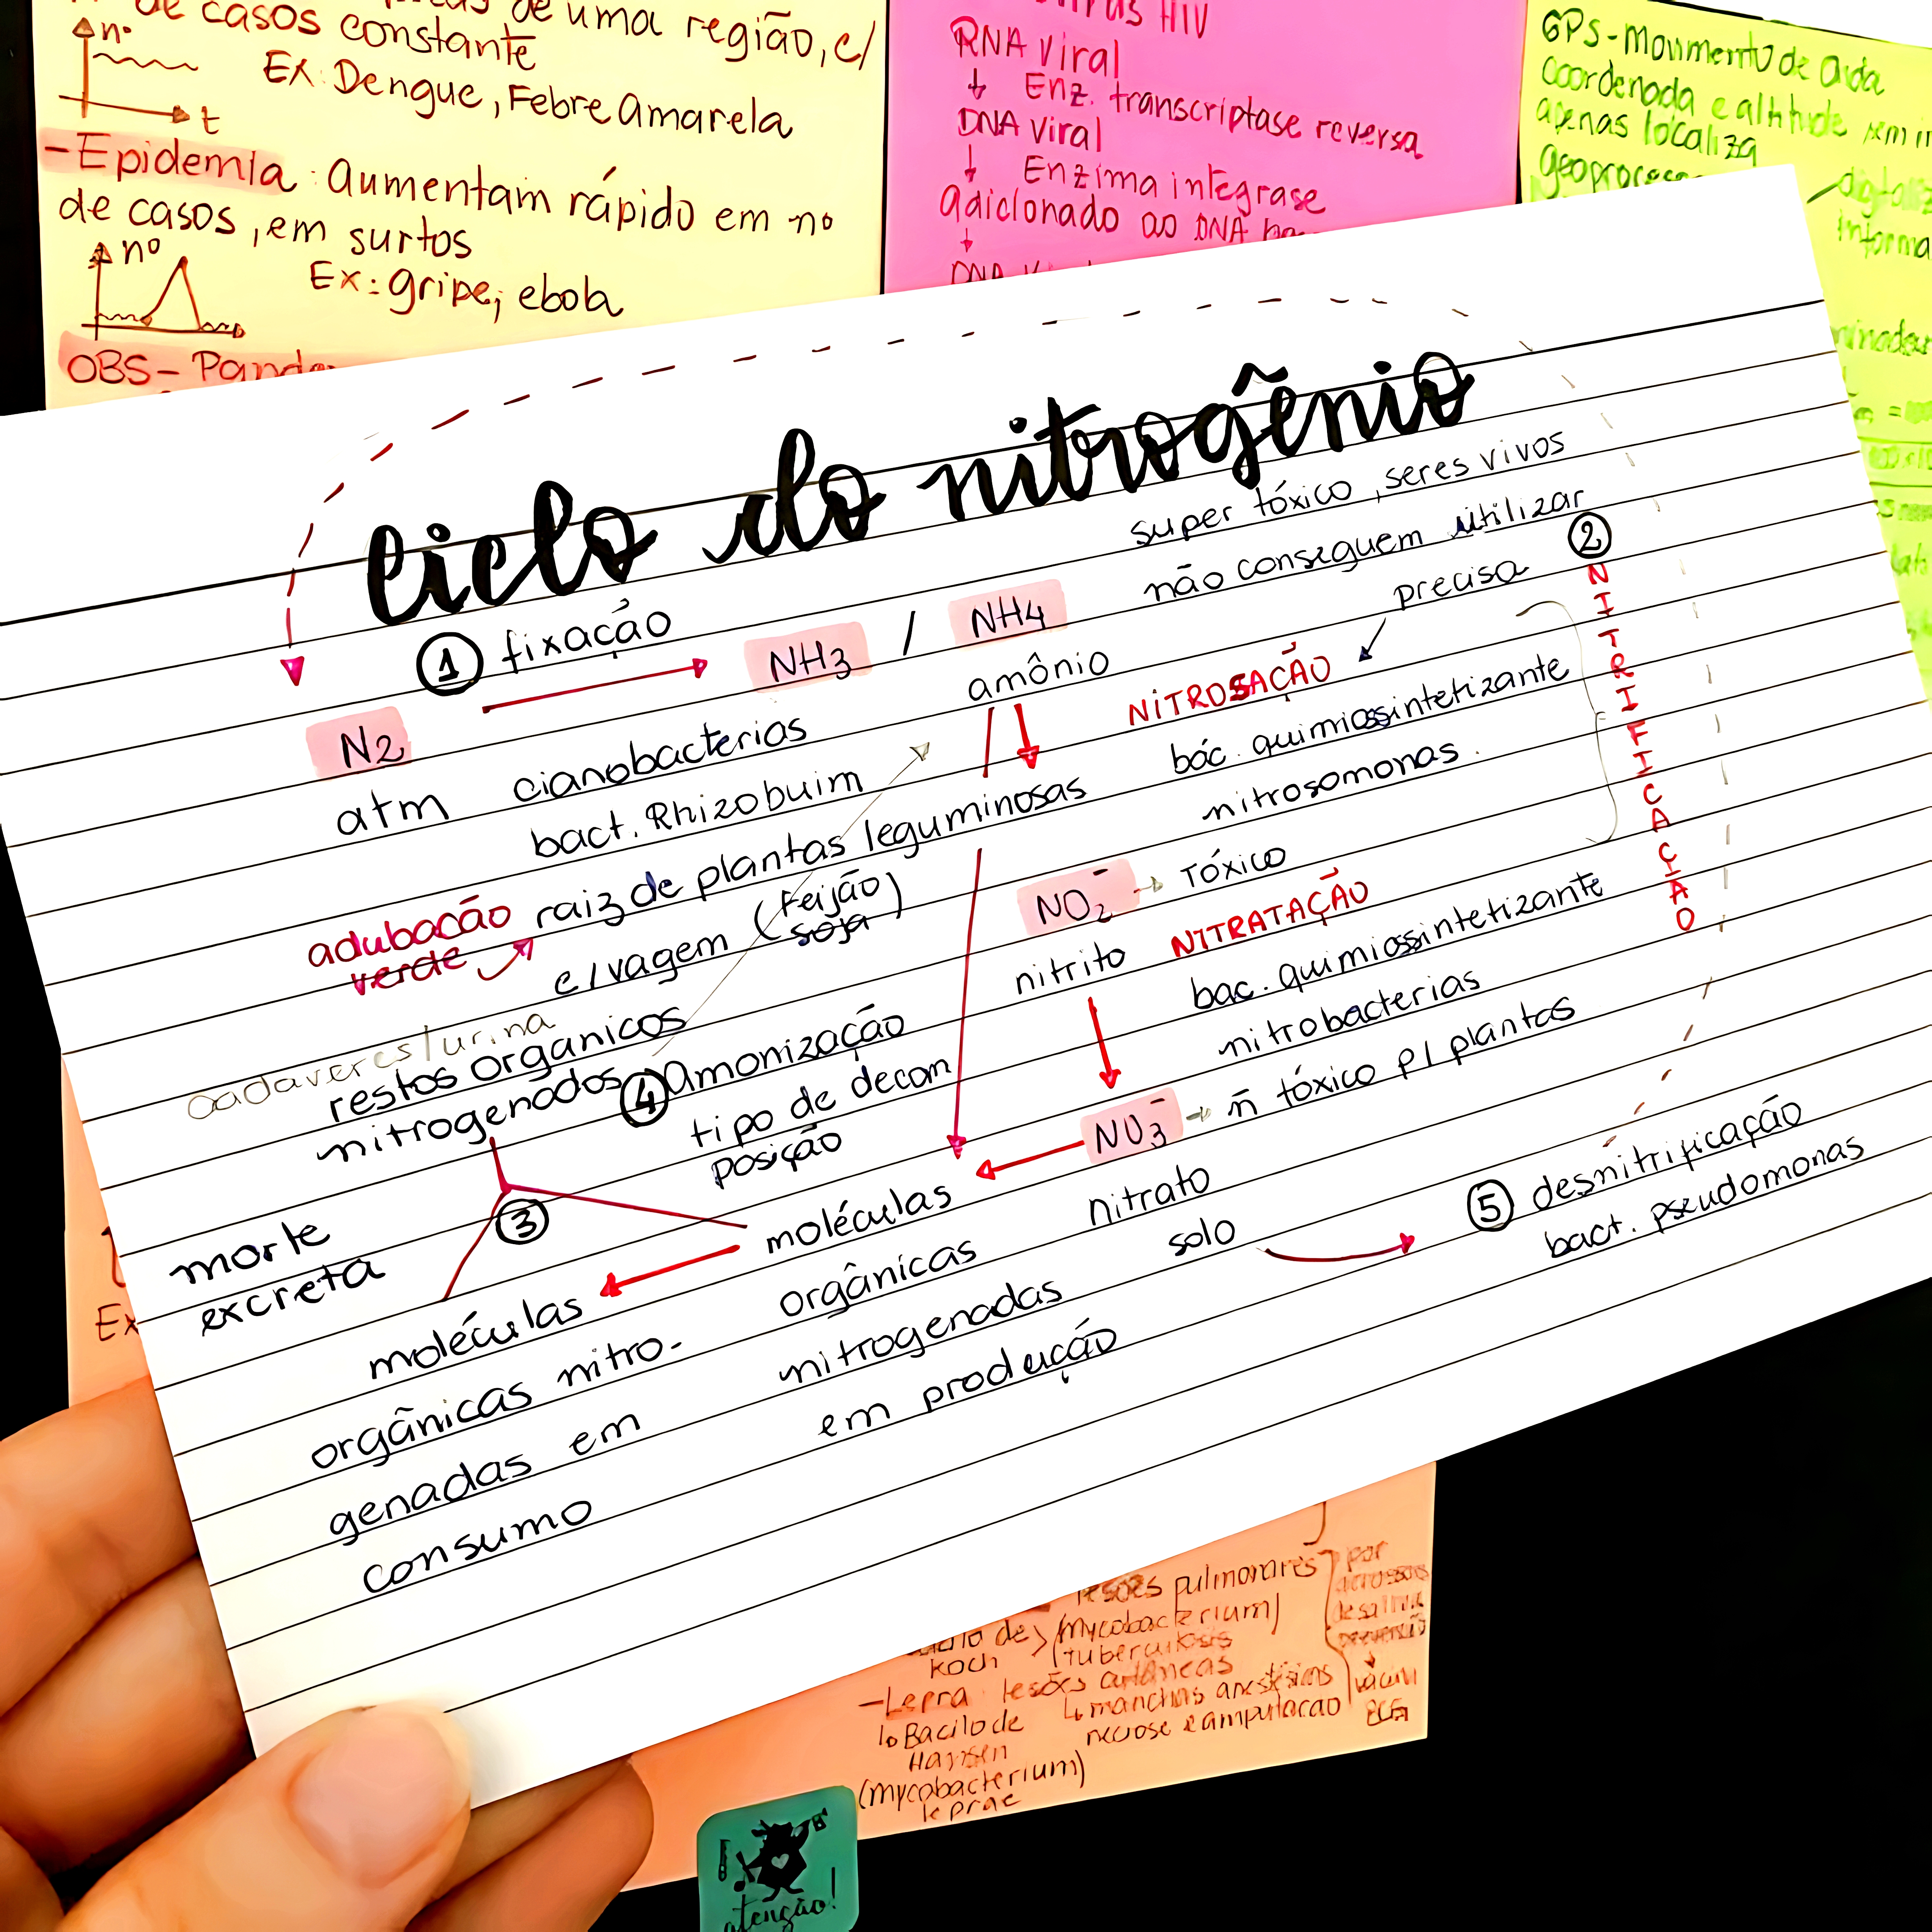 de casos
de uma região, c/
constante
Ex: Dengue, Febre Amarela
nº
t
- Epidemia: Aumentam rápido em nº
de casos, em surtos
nº
Ex: gripe; ebola
OBS-
HIV
RNA viral
↓ Enz. transcriptase reversa
DNA viral
↓ Enzima integrase
adicionado ao DNA
↓
DNA
GPS - Movimento de
coordenada e altitude sem
apenas localiza
ciclo do nitrogênio
super tóxico, seres vivos
não conseguem utilizar
① fixação
NH3 / NH4
amônio
precisa
② NITRIFICAÇÃO
N2
atm
cianobacterias
bact. Rhizobuim
raiz de plantas leguminosas
c/ vagem (feijão
soja)
adubacão
verde
NITROSAÇÃO
bác. quimiossintetizante
nitrosomonas.
NO2⁻ → TÓXICO
nitrito
NITRATAÇÃO
bac. quimiossintetizante
nitrobacterias
NO3⁻ → ñ tóxico p/ plantas
nitrato
solo
cadaveres/urina
restos organicos
nitrogenados
④ Amonização
tipo de decom
posição
morte
excreta
③
moléculas
orgânicas
nitrogenadas
em produção
moléculas
orgânicas nitro-
genadas em
consumo
⑤ desnitrificação
bact. pseudomonas
Ex
lesões pulmonares
koch
(mycobacterium)
(tuberculosis
- Lepra: lesões cutâneas
↳ Bacilo de
Hansen
(mycobacterium)
leprae
↳ manchas anestésicas
necrose e amputacao
por
vacina
BCG
atenção!